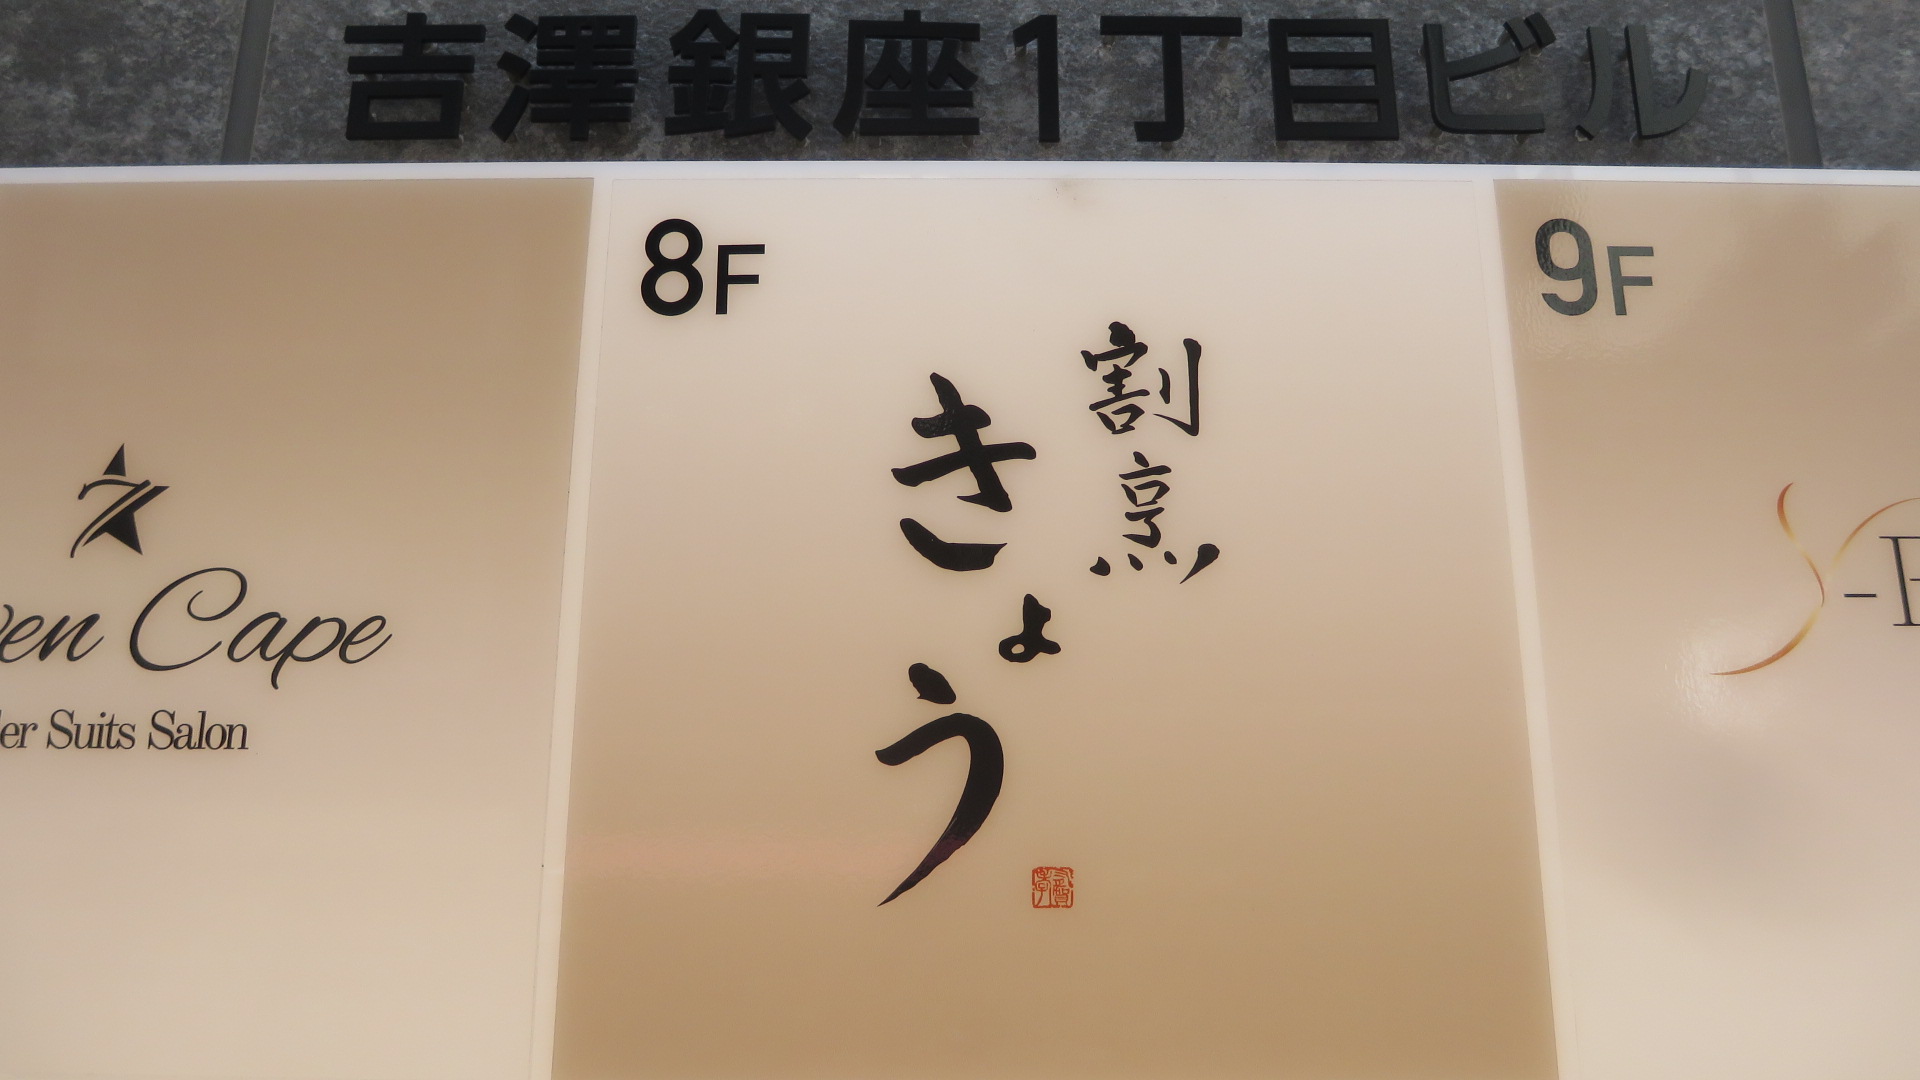 吉澤銀座1丁目ビル
8F
割烹
きょう
9F
Cape
Suits Salon